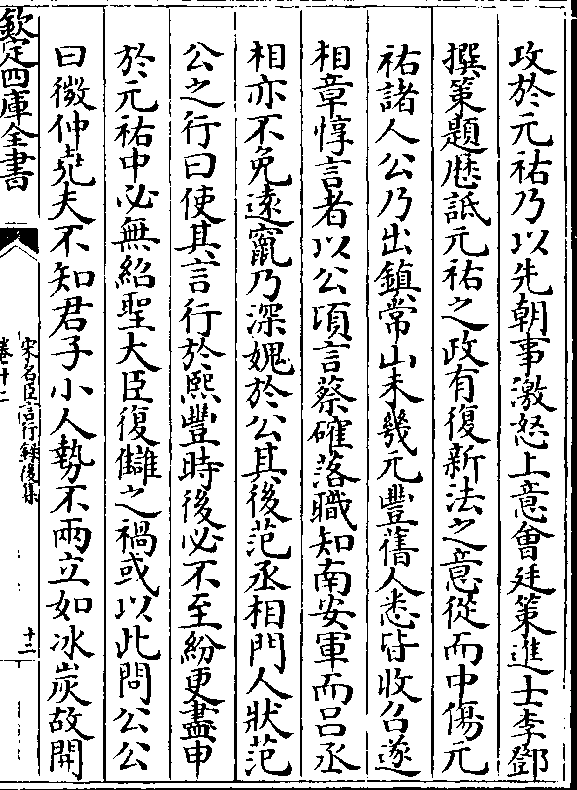 攻於元祐乃以先朝事激怒上意會廷策進士李鄧
撰策題厯詆元祐之政有復新法之意從而中傷元
祐諸人公乃出鎮常山未幾元豐舊人悉皆收召遂
相章惇言者以公頃言蔡確落職知南安軍而吕丞
相亦不免遠竄乃深媿於公其後范丞相門人狀范
公之行曰使其言行於熙豐時後必不至紛更盡申
於元祐中必無紹聖大臣復讎之禍或以此問公公
曰微仲堯夫不知君子小人勢不兩立如冰炭故開
欽定四庫全書
宋名臣言行録後集
卷十二
十二